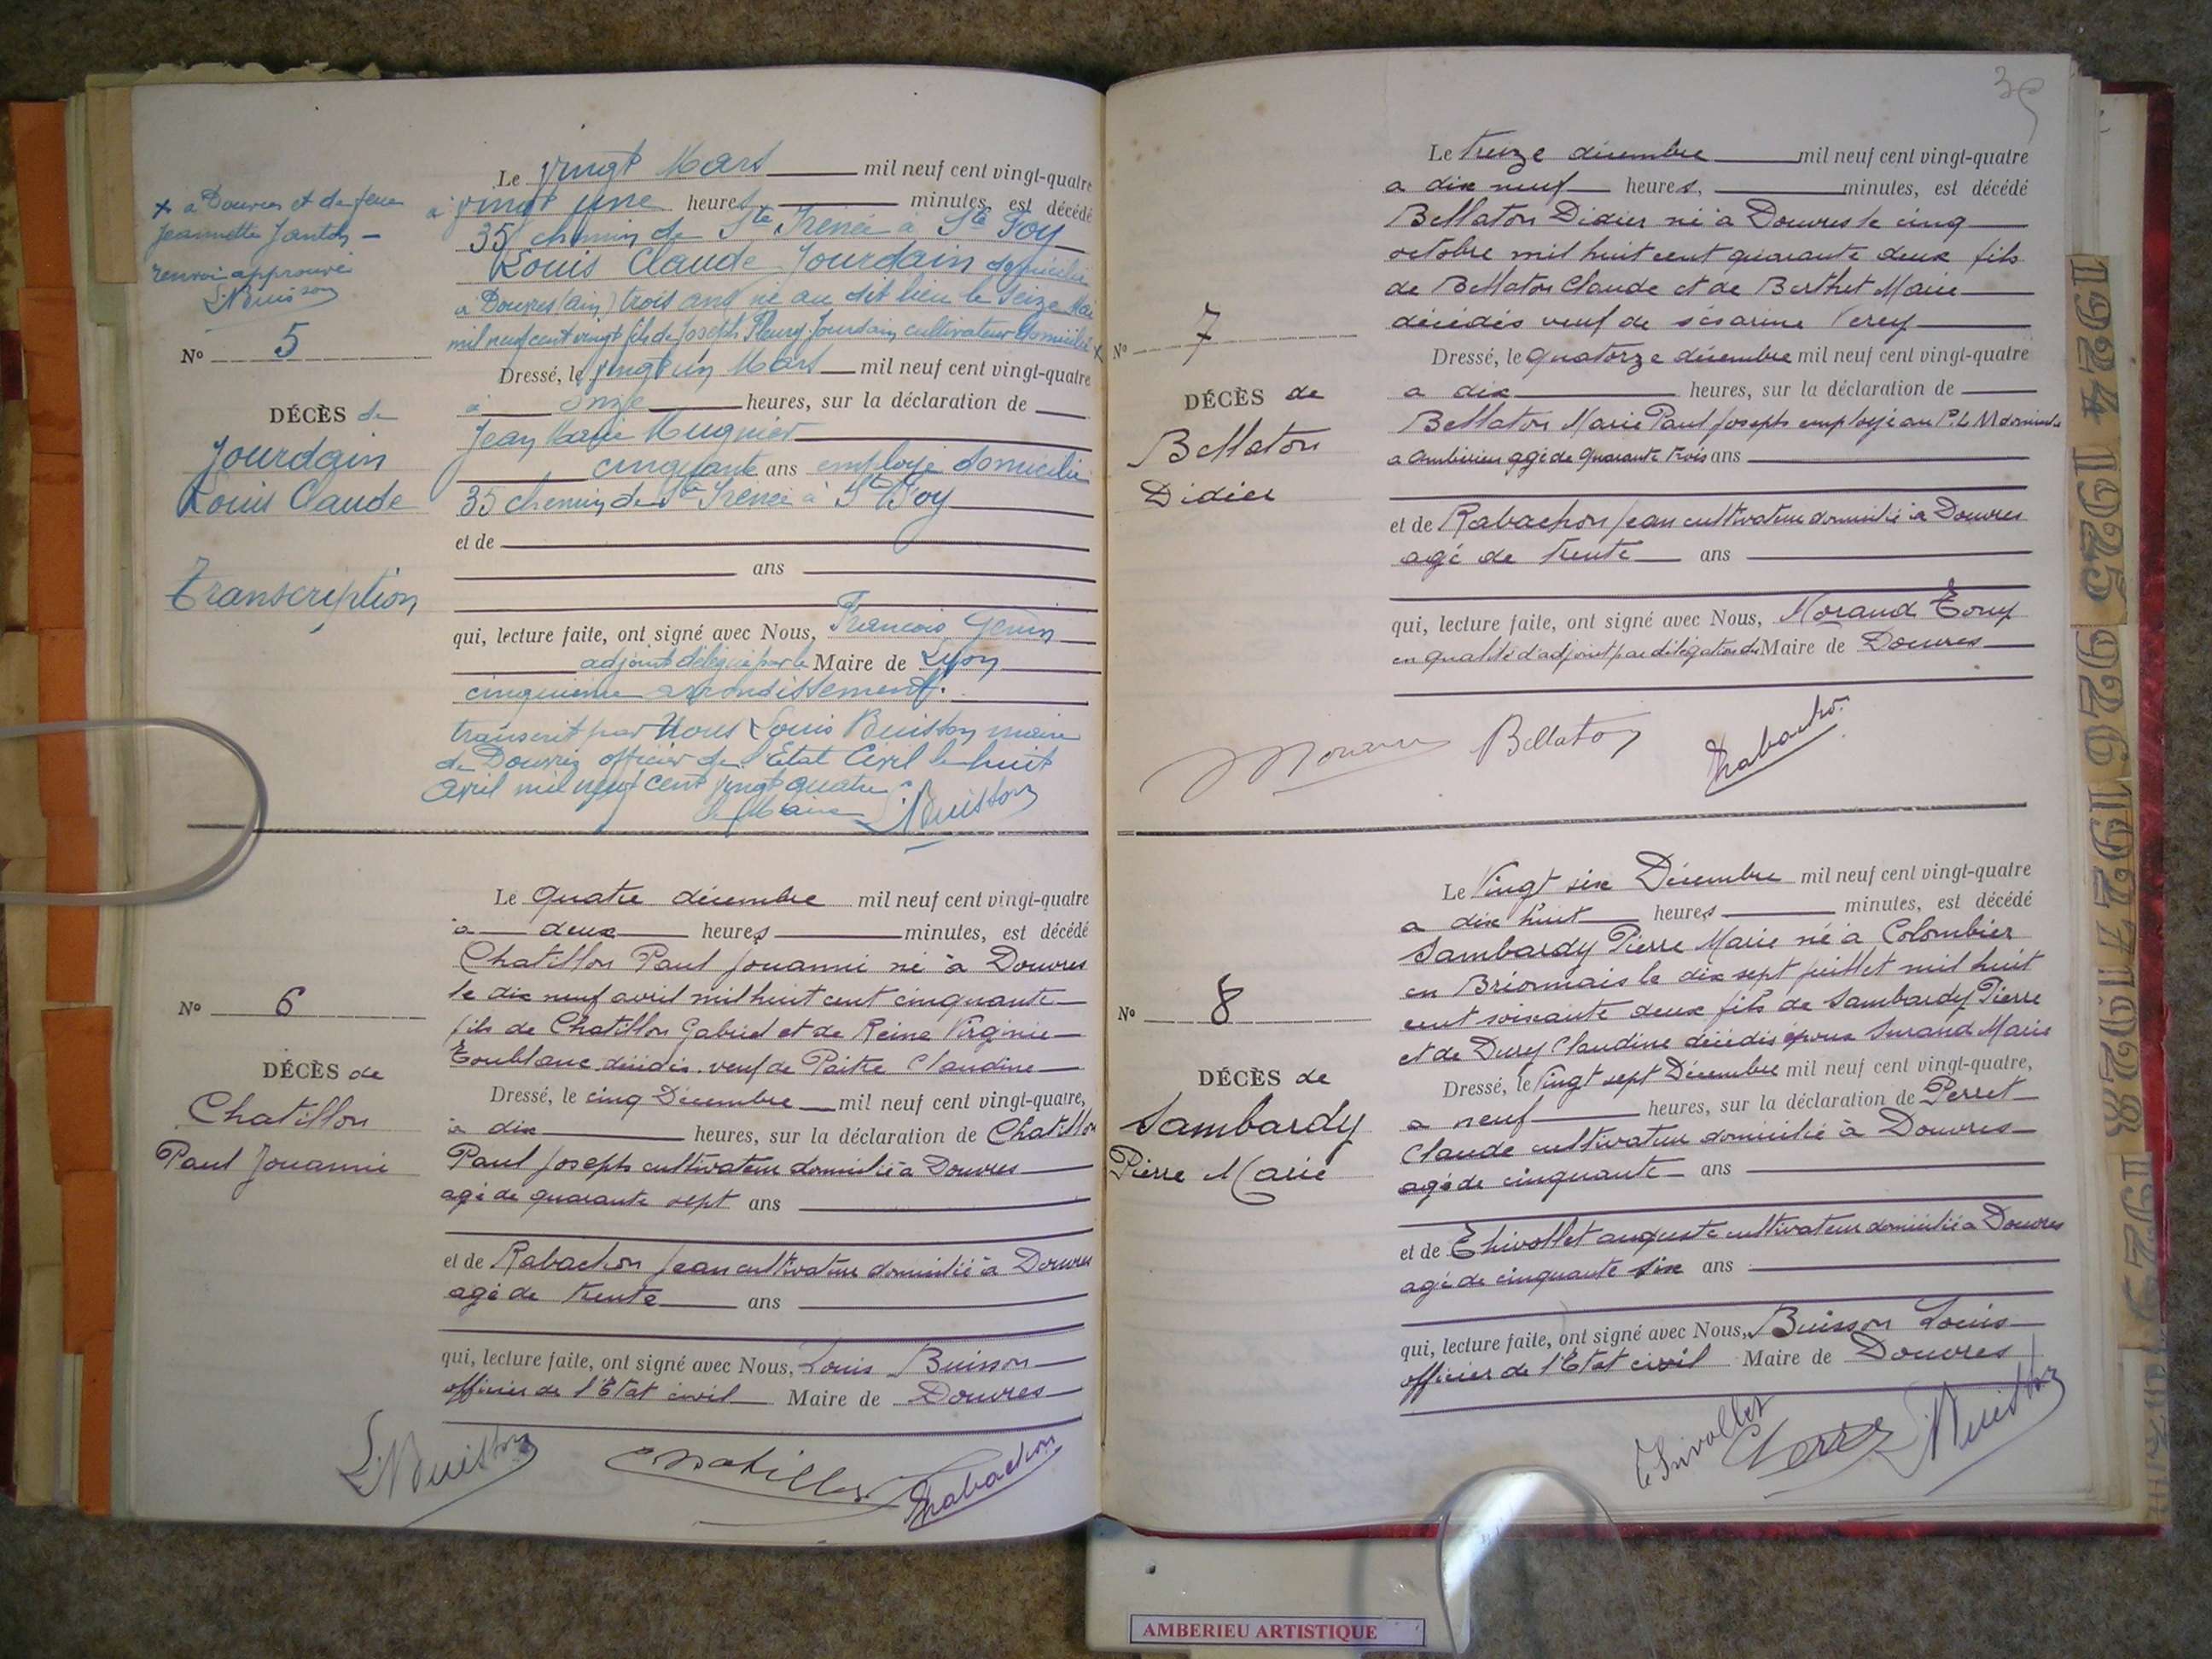 x a Douvres et de feue
Jeannette Janton
renvoi approuvé
L. Buisson
No 5
DÉCÈS de
Jourdain
Louis Claude
Transcription
Le vingt Mars mil neuf cent vingt-quatre
à vingt une heures minutes, est décédé
35 chemin de Ste Irénée à Ste Foy
Louis Claude Jourdain domicilié
a Douvres (ain) trois ans né au dit lieu le seize Mai
mil neuf cent vingt fils de Joseph Fleury Jourdain cultivateur domicilié x
Dressé, le vingt un Mars mil neuf cent vingt-quatre
à onze heures, sur la déclaration de
Jean Marie Mugnier
cinquante ans employé domicilié
35 chemin de Ste Irénée à Ste Foy
et de
ans
qui, lecture faite, ont signé avec Nous, François Genin
adjoint délégué par le Maire de Lyon
cinquième arrondissement.
transcrit par Nous Louis Buisson maire
de Douvres officier de l'Etat Civil le huit
avril mil neuf cent vingt quatre
le Maire L. Buisson
No 6
DÉCÈS de
Chatillon
Paul Jouanni
Le quatre décembre mil neuf cent vingt-quatre
à deux heures minutes, est décédé
Chatillon Paul Jouanni né à Douvres
le dix neuf avril mil huit cent cinquante
fils de Chatillon Gabriel et de Reine Virginie
Toublanc décédés. veuf de Paitre Claudine
Dressé, le cinq Décembre mil neuf cent vingt-quatre,
à dix heures, sur la déclaration de Chatillon
Paul Joseph cultivateur domicilié à Douvres
agé de quarante sept ans
et de Rabachon Jean cultivateur domicilié à Douvres
agé de trente ans
qui, lecture faite, ont signé avec Nous, Louis Buisson
officier de l'Etat civil Maire de Douvres
L. Buisson Chatillon Rabachon
35
No 7
DÉCÈS de
Bellaton
Didier
Le treize décembre mil neuf cent vingt-quatre
a dix neuf heures, minutes, est décédé
Bellaton Didier né à Douvres le cinq
octobre mil huit cent quarante deux fils
de Bellaton Claude et de Berthet Marie
décédés veuf de sésarine Verey
Dressé, le quatorze décembre mil neuf cent vingt-quatre
a dix heures, sur la déclaration de
Bellaton Marie Paul Joseph employé au P. L. M domicilié
a ambérieu agé de quarante trois ans
et de Rabachon Jean cultivateur domicilié à Douvres
agé de trente ans
qui, lecture faite, ont signé avec Nous, Morand Tony
en qualité d'adjoint par délégation du Maire de Douvres
Morand Bellaton Rabachon
No 8
DÉCÈS de
Sambardy
Pierre Marie
Le Vingt six Décembre mil neuf cent vingt-quatre
a dix huit heures minutes, est décédé
Sambardy Pierre Marie né à Colombier
en Brionnais le dix sept juillet mil huit
cent soixante deux fils de Sambardy Pierre
et de Durey Claudine décédés époux Durand Marie
Dressé, le vingt sept Décembre mil neuf cent vingt-quatre,
a neuf heures, sur la déclaration de Perret
Claude cultivateur domicilié à Douvres
agé de cinquante ans
et de Thivollet auguste cultivateur domicilié a Douvres
agé de cinquante six ans
qui, lecture faite, ont signé avec Nous, Buisson Louis
officier de l'Etat civil Maire de Douvres
Thivollet Perret L. Buisson
1924 1925 1926 1927 1928 1929
AMBERIEU ARTISTIQUE